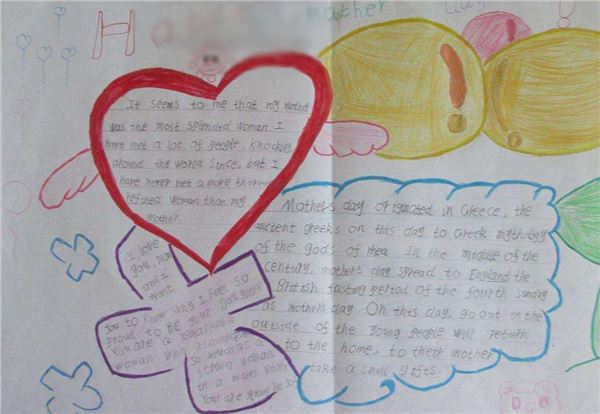 Ha
mother
day
It seems to me that my mother
was the most splendid woman I
have met a lot of people, knocking
around the world since, but I
have never met a more
refined woman than my
mother.
I love
you, mom
and I
want
you to know why I feel so
proud to be your
You are a remarkable
woman who
so much as a
strong woman
in a mans
You are
Mothers day originated in Greece, the
ancient greeks on this day to Greek mythology
of the gods of rhea. In the middle of the
century, mothers day spread to England the
British fasting period of the fourth sunday
as mothers day. On this day, go out in the
outside of the young people will return
to the home, to their mother
take a small gifts.